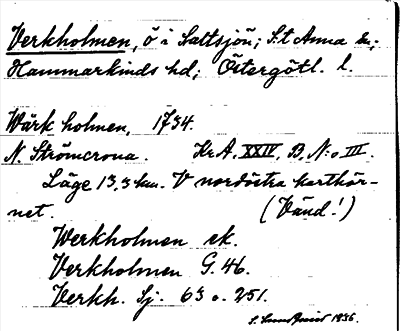 Verkholmen, ö i Saltsjön; S:t Anna sn;
Hammarkinds hd; Östergötl. l.
Wärk holmen, 1734.
N. Strömcrona. Kr.A. XXIV. B, N:o III.
Läge 13,3 km. V nordöstra karthör-
net. (Vänd!)
Werkholmen ek.
Verkholmen G. 46.
Verkh. Sj. 63 o. 251.
1936.